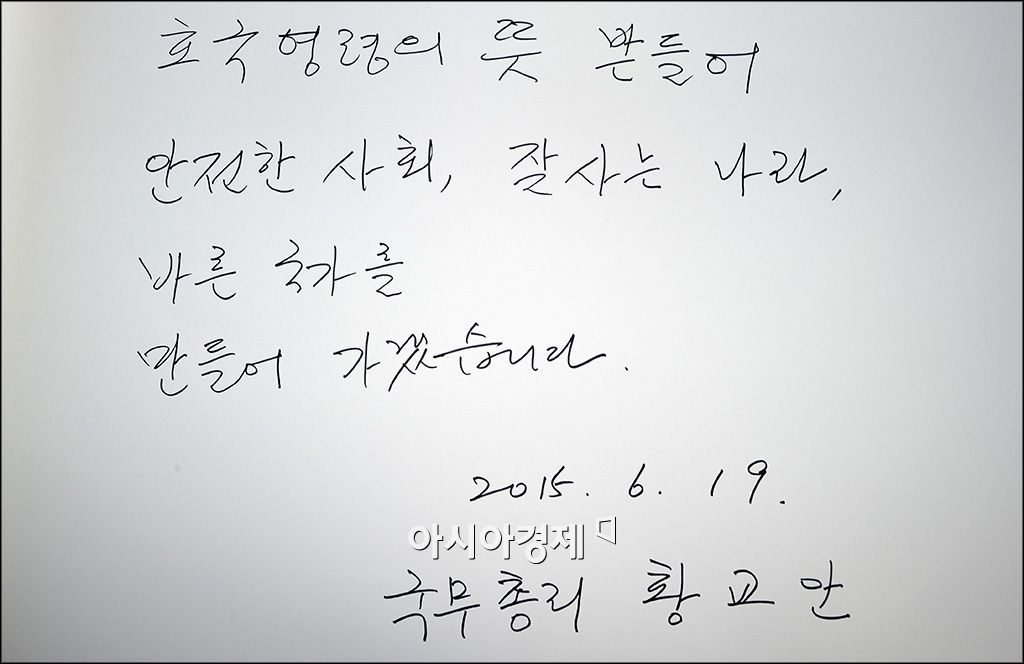 호국영령의 뜻 받들어
안전한 사회, 잘사는 나라,
바른 국가를
만들어 가겠습니다.
2015. 6. 19.
아시아경제
국무총리 황교안